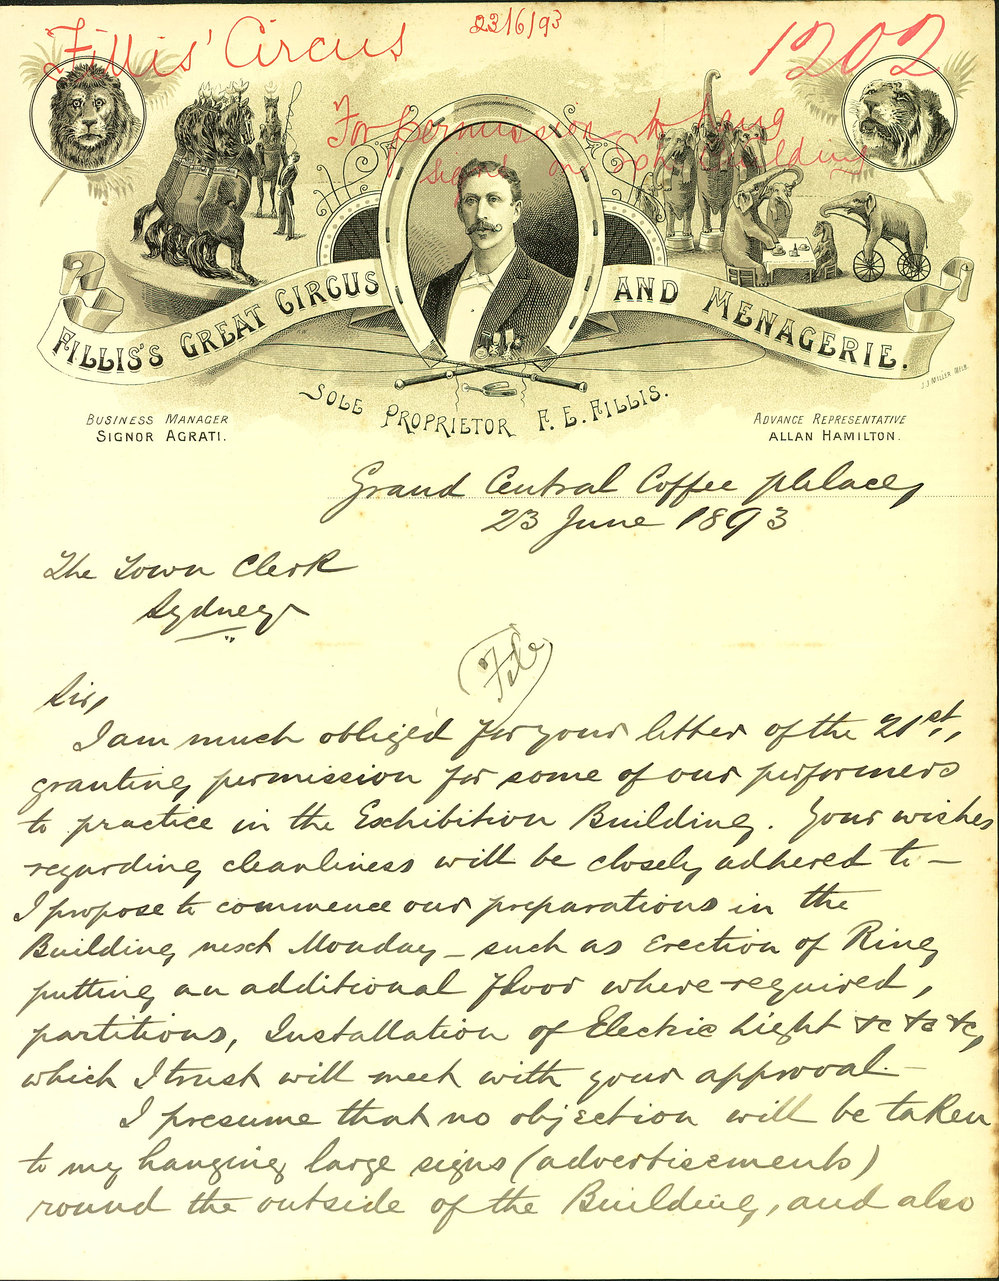 Fillis' Circus
23/6/93
1202
For permission to hang
signs on Exh. building
FILLIS'S GREAT CIRCUS AND MENAGERIE.
J.J. MILLER MELB.
SOLE PROPRIETOR F. E. FILLIS.
BUSINESS MANAGER
SIGNOR AGRATI.
ADVANCE REPRESENTATIVE
ALLAN HAMILTON.
Grand Central Coffee Palace,
23 June 1893
The Town Clerk
Sydney
File
Sir,
I am much obliged for your letter of the 21st,
granting permission for some of our performers
to practice in the Exhibition Building. Your wishes
regarding cleanliness will be closely adhered to -
I propose to commence our preparations in the
Building next Monday - such as Erection of Ring
putting an additional floor where required,
partitions, Installation of Electric Light &c &c &c,
which I trust will meet with your approval. -
I presume that no objection will be taken
to my hanging large signs (advertisements)
round the outside of the Building, and also